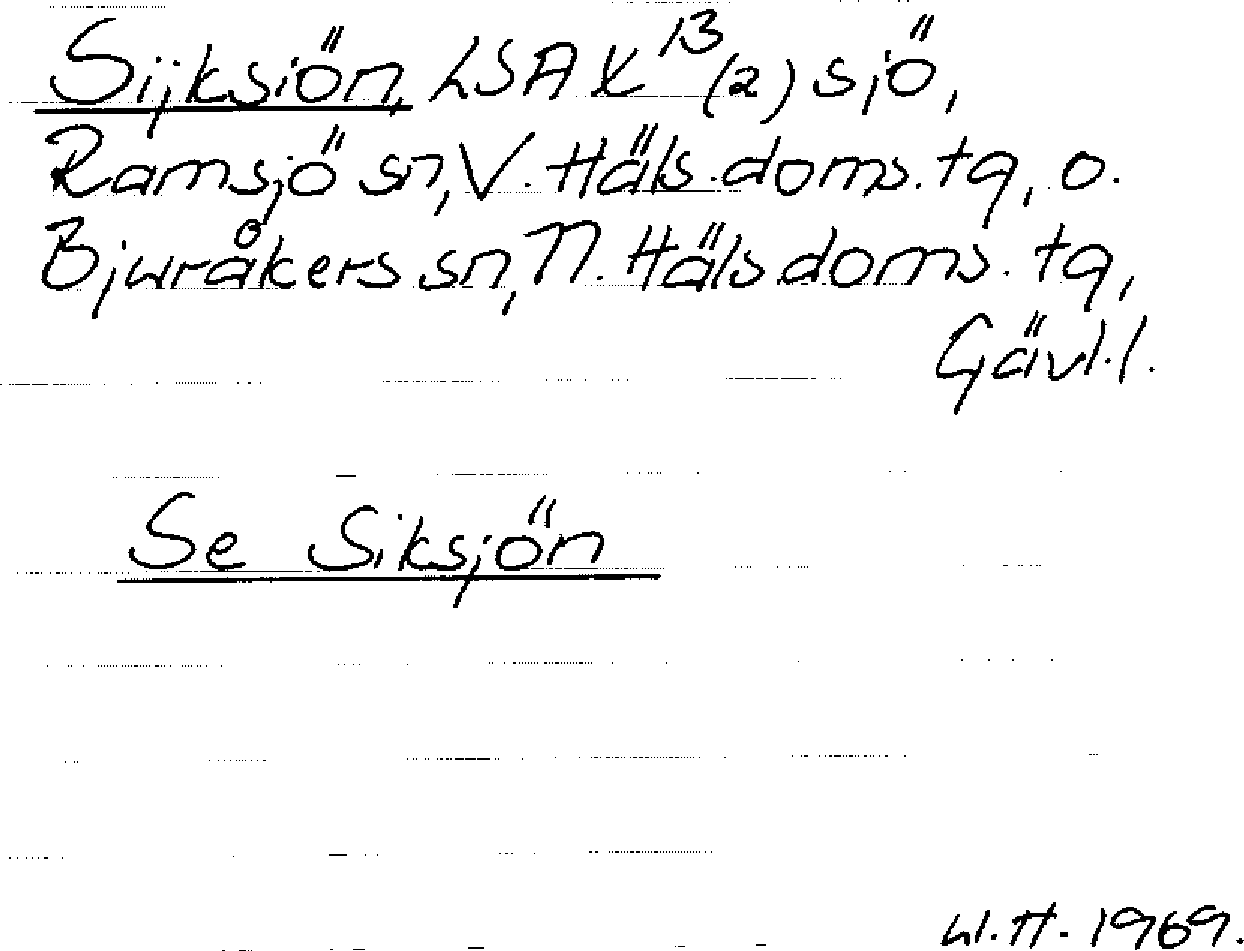 Sijksiön, LSA X¹³ (2) sjö,
Ramsjö sn, V. Häls. doms. tg, o.
Bjuråkers sn, N. Häls doms. tg,
Gävl.l.
Se Siksjön
W.H. 1969.